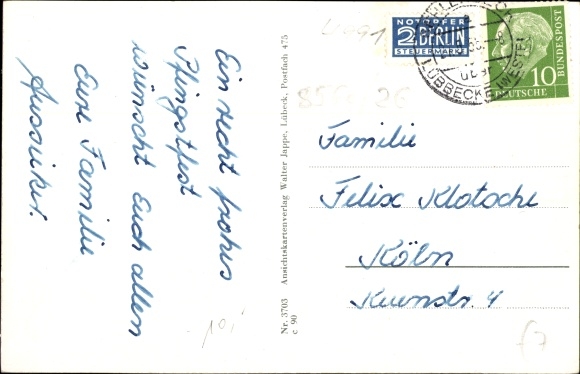 Ein recht frohes
Pfingstfest
wünscht Euch allen
Eure Familie
Nr. 3703 Ansichtskartenverlag Walter Jappe, Lübeck, Postfach 475
c 90
NOTOPFER
2 BERLIN
STEUERMARKE
LÜBBECKE (WESTF)
10
DEUTSCHE
BUNDESPOST
Familie
Felix Klotsche
Köln
Kuenstr. 4
10,-